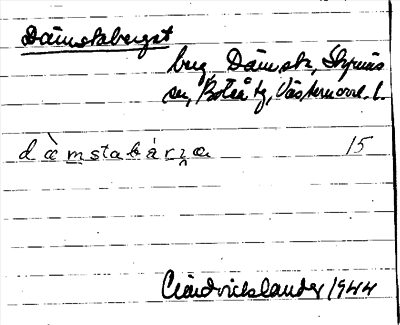 Dämstaberget
berg, Dämsta, Skprnäs
sn, Boteå tg, Västernorrl. l.
dàmstabárja 15
1944